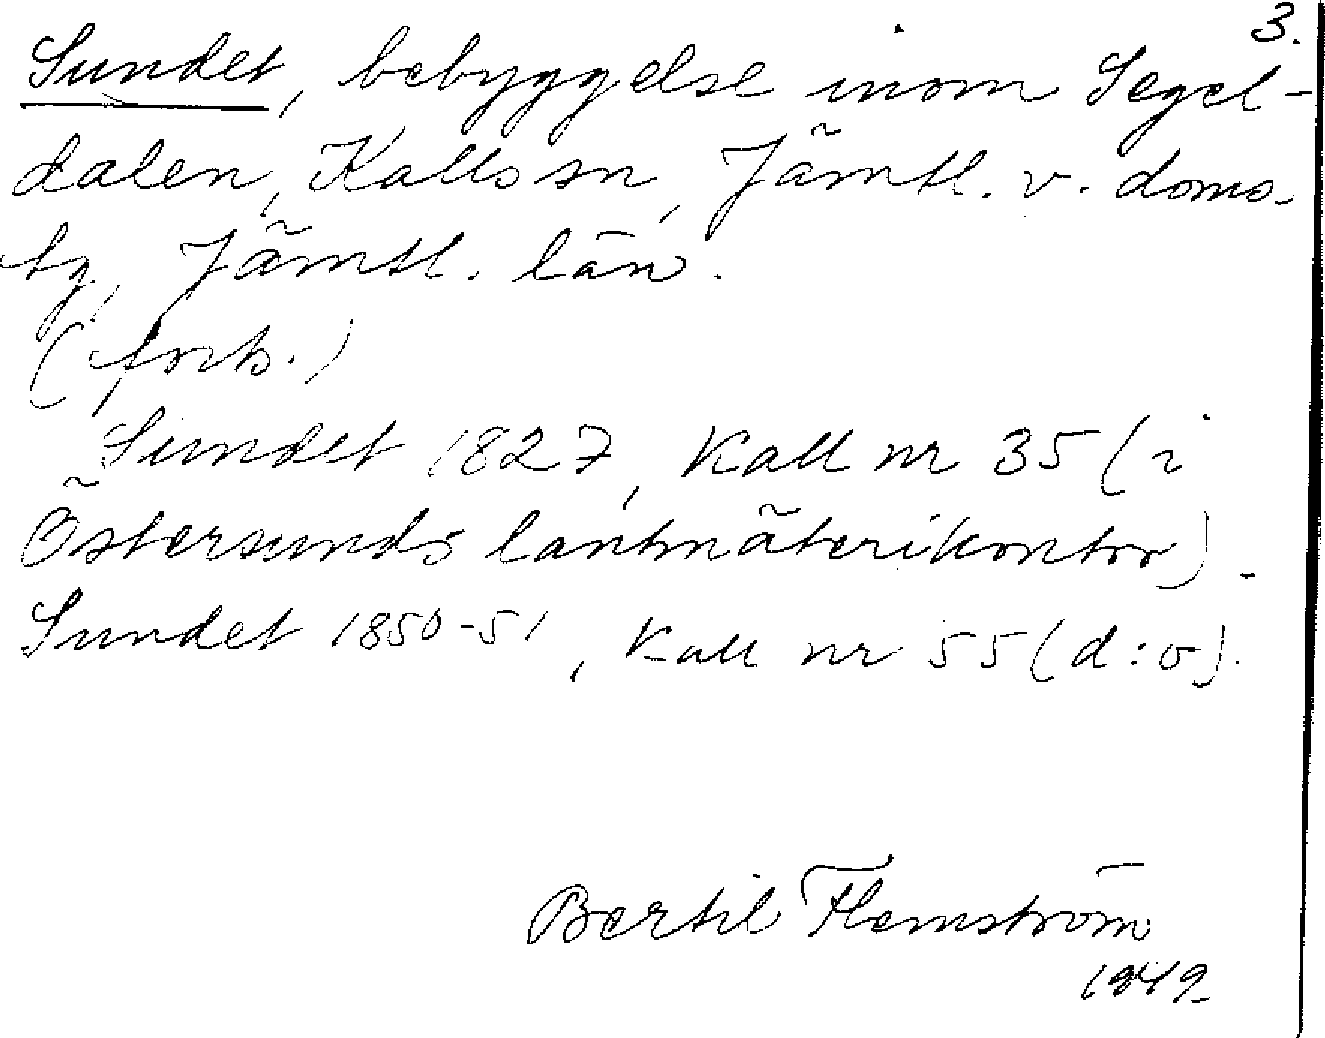 3.
Sundet, bebyggelse inom Segel-
dalen, Kalls sn, Jämtl. v. doms-
ty, Jämtl. län.
(forts.)
Sundet 1827, Kall nr 35 (i
Östersunds lantmäterikontor).
Sundet 1850-51, Kall nr 55 (d:o).
Bertil Flemström
1949